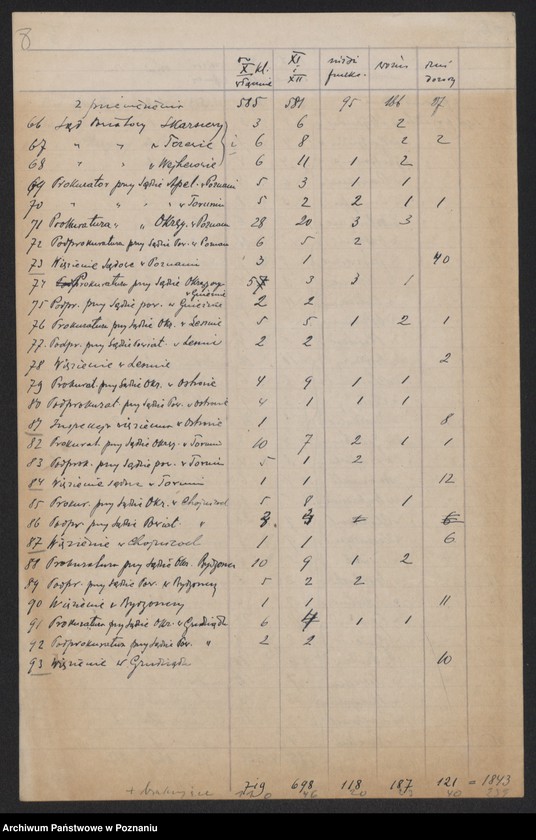 8
do X kl. włącznie XI i XII niżsi funkc. woźni dozorcy
z przeniesienia 585 581 95 166 37
66 Sąd Powiatowy Skarszewy 3 6 2
67 " " w Tczewie i 6 8 2 2
68 " " w Wejherowie 6 11 1 2
69 Prokurator przy Sądzie Apel. w Poznaniu 5 3 1 1
70 " " " " w Toruniu 5 2 2 1 1
71 Prokuratura " " Okręg. w Poznaniu 28 20 3 3
72 Podprokuratura przy Sądzie Pow. w Poznaniu 6 5 2
73 Więzienie Sądowe w Poznaniu 3 1 40
74 Prokuratura przy Sądzie Okręgowym w Gnieźnie 5 3 3 1
75 Podpr. przy Sądzie pow. w Gnieźnie 2 2
76 Prokuratura przy Sądzie Okr. w Lesznie 5 5 1 2 1
77. Podpr. przy Sądzie powiat. w Lesznie 2 2
78 Więzienie w Lesznie 2
79 Prokurat. przy Sądzie Okr. w Ostrowie 4 9 1 1
80 Podprokurat. przy Sądzie Pow. w Ostrowie 4 1 1 1
81 Inspekcja więzienna w Ostrowie 1 8
82 Prokurat. przy Sądzie Okręg. w Toruniu 10 7 2 1 1
83 Podprok. przy Sądzie pow. w Toruniu 5 1 2
84 Więzienie sądowe w Toruniu 1 1 12
85 Prokur. przy Sądzie Okr. w Chojnicach 5 8 1
86 Podpr. przy Sądzie Powiat. " 3. 3 1 6
87 Więzienie w Chojnicach 1 1 6
88 Prokuratura przy Sądzie Okr. Bydgoszcz 10 9 1 2
89 Podpr. przy Sądzie Pow. w Bydgoszczy 5 2 2
90 Więzienie w Bydgoszczy 1 1 11
91 Prokuratura przy Sądzie Okr. w Grudziądzu 6 4 1 1
92 Podprokuratura przy Sądzie Pow. " 2 2
93 Więzienie w Grudziądzu 10
719 698 118 187 121 = 1843
+ brakujące 46 20 40 239
Archiwum Państwowe w Poznaniu